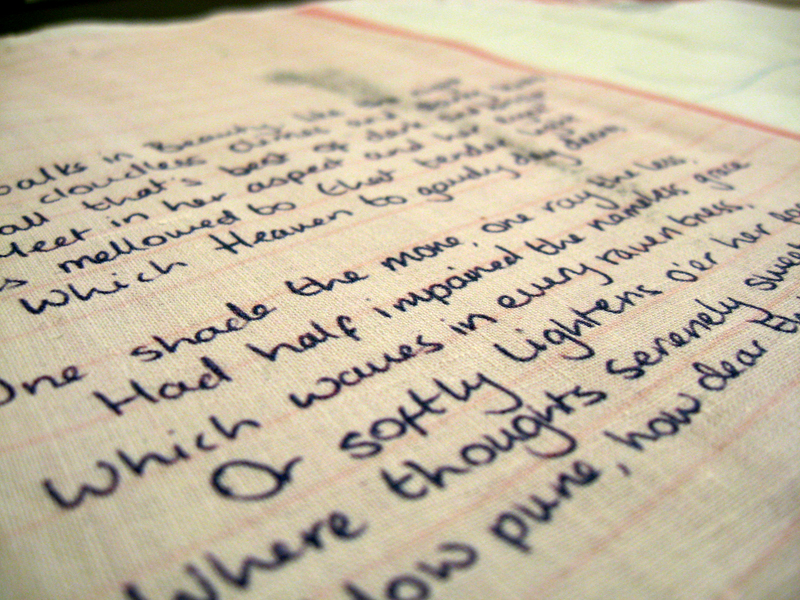 walks in Beauty, like the
cloudless climes and
all that's best of dark and
Meet in her aspect and her eyes
mellowed to that tender light
Which Heaven to gaudy day denies
One shade the more, one ray the less,
Had half impaired the nameless grace
Which waves in every raven tress,
Or softly lightens o'er her
Where thoughts serenely sweet
how pure, how dear